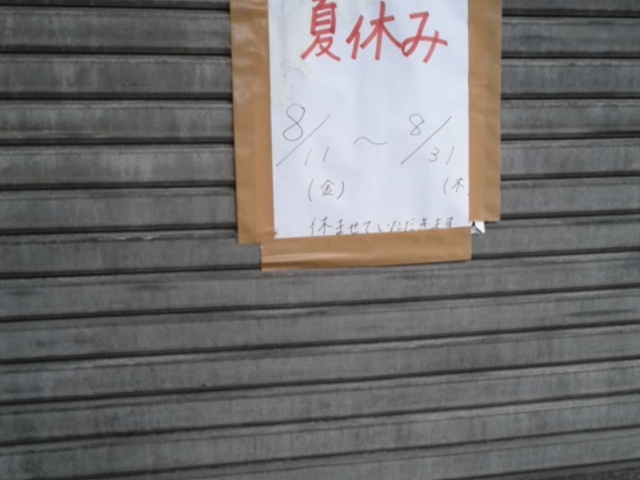 夏休み
8/11 ~ 8/31
(金) (木
休ませていただきます